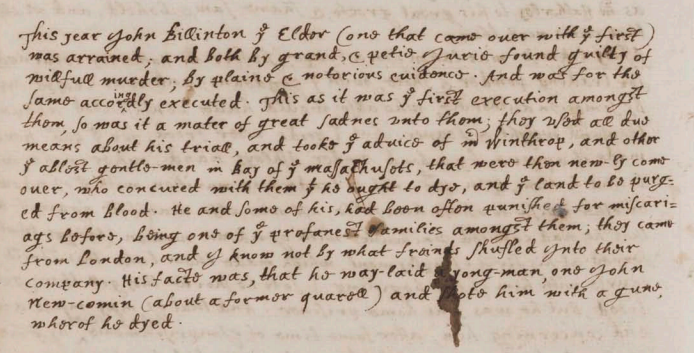 This year John Billinton yͤ Elder (one that came over with yͤ first)
was arrained; and both by grand, & petie Jurie found guilty of
willfull murder; by plaine & notorious evidence. And was for the
same accordingly executed. This as it was yͤ first execution amongst
them, so was it a mater of great sadnes unto them; they used all due
means about his triall, and tooke yͤ advice of mͬ Winthrop, and other
yͤ ablest gentle-men in bay of yͤ massachusets, that were then new-ly come
over, who concured with them yͭ he ought to dye, and yͤ land to be purg-
ed from blood. He and some of his, had been often punished for miscari-
ags before, being one of yͤ profanest families amongst them; they came
from London, and I know not by what freinds shufled into their
company. His facte was, that he way-laid a yong-man, one John
New-comin (about a former quarell) and shote him with a gune,
wherof he dyed.